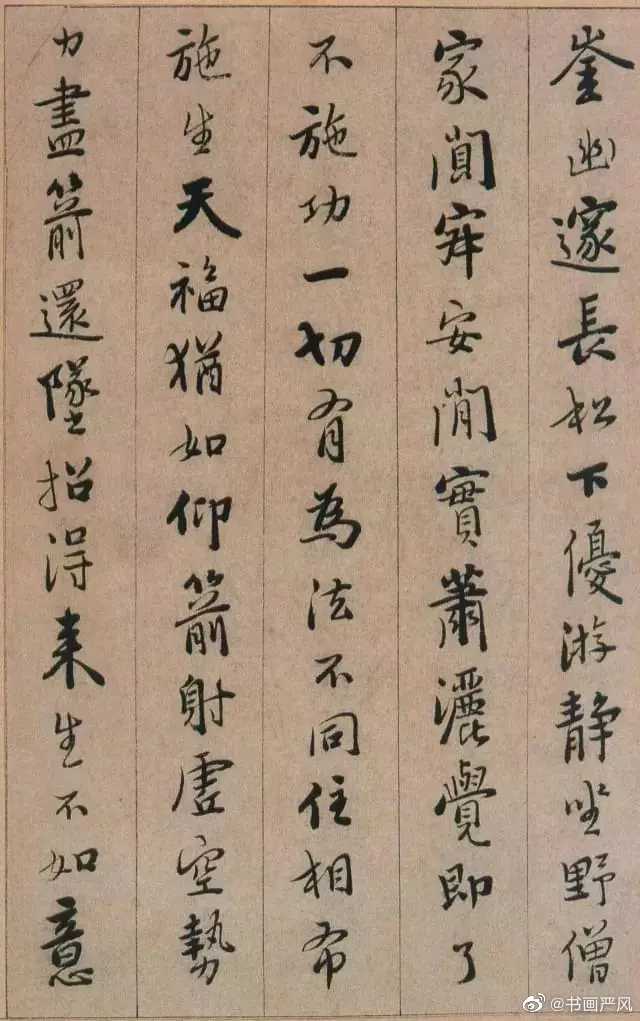 崟幽邃長松下優游静坐野僧
家闃寂安閑實蕭灑覺即了
不施功一切有為法不同住相布
施生天福猶如仰箭射虚空勢
力盡箭還墜招得来生不如意
@书画严风